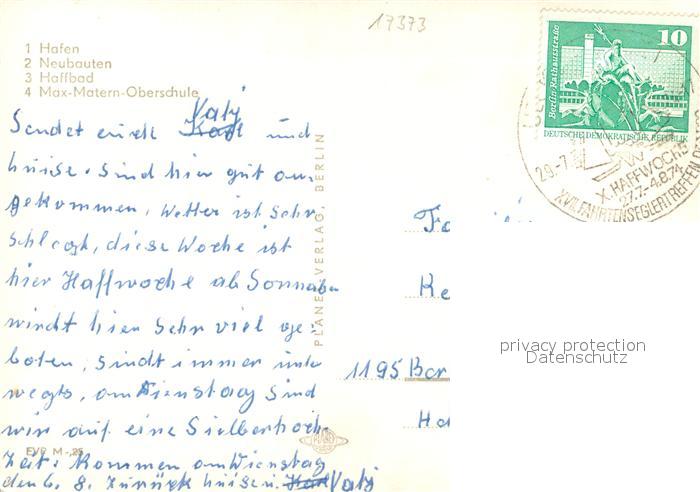 17373
1 Hafen
2 Neubauten
3 Haffbad
4 Max-Matern-Oberschule
Vatj
Sendet eurch und
hüise. Sind hier gut an-
gekommen, Wetter ist sehr
schlegt, diese Woche ist
hier Haffwoche ab Sonnaben
wirdt hier sehr viel ge-
boten, sindt immer unter
wegts, am Dienstag sind
wir auf eine Sielberhoch-
Zeit. Kommen am Dienstag
den 6. 8. zurück hüise u. Vatj
EVP M -,25
PLANET-VERLAG, BERLIN
PLANET
10
Berlin-Rathausstraße
DEUTSCHE DEMOKRATISCHE REPUBLIK
29.-7.
X. HAFFWOCHE
27.7.-4.8.74
XVII. FAHRTENSEGLERTREFFEN
Fa
Ke
1195 Ber
privacy protection
Datenschutz